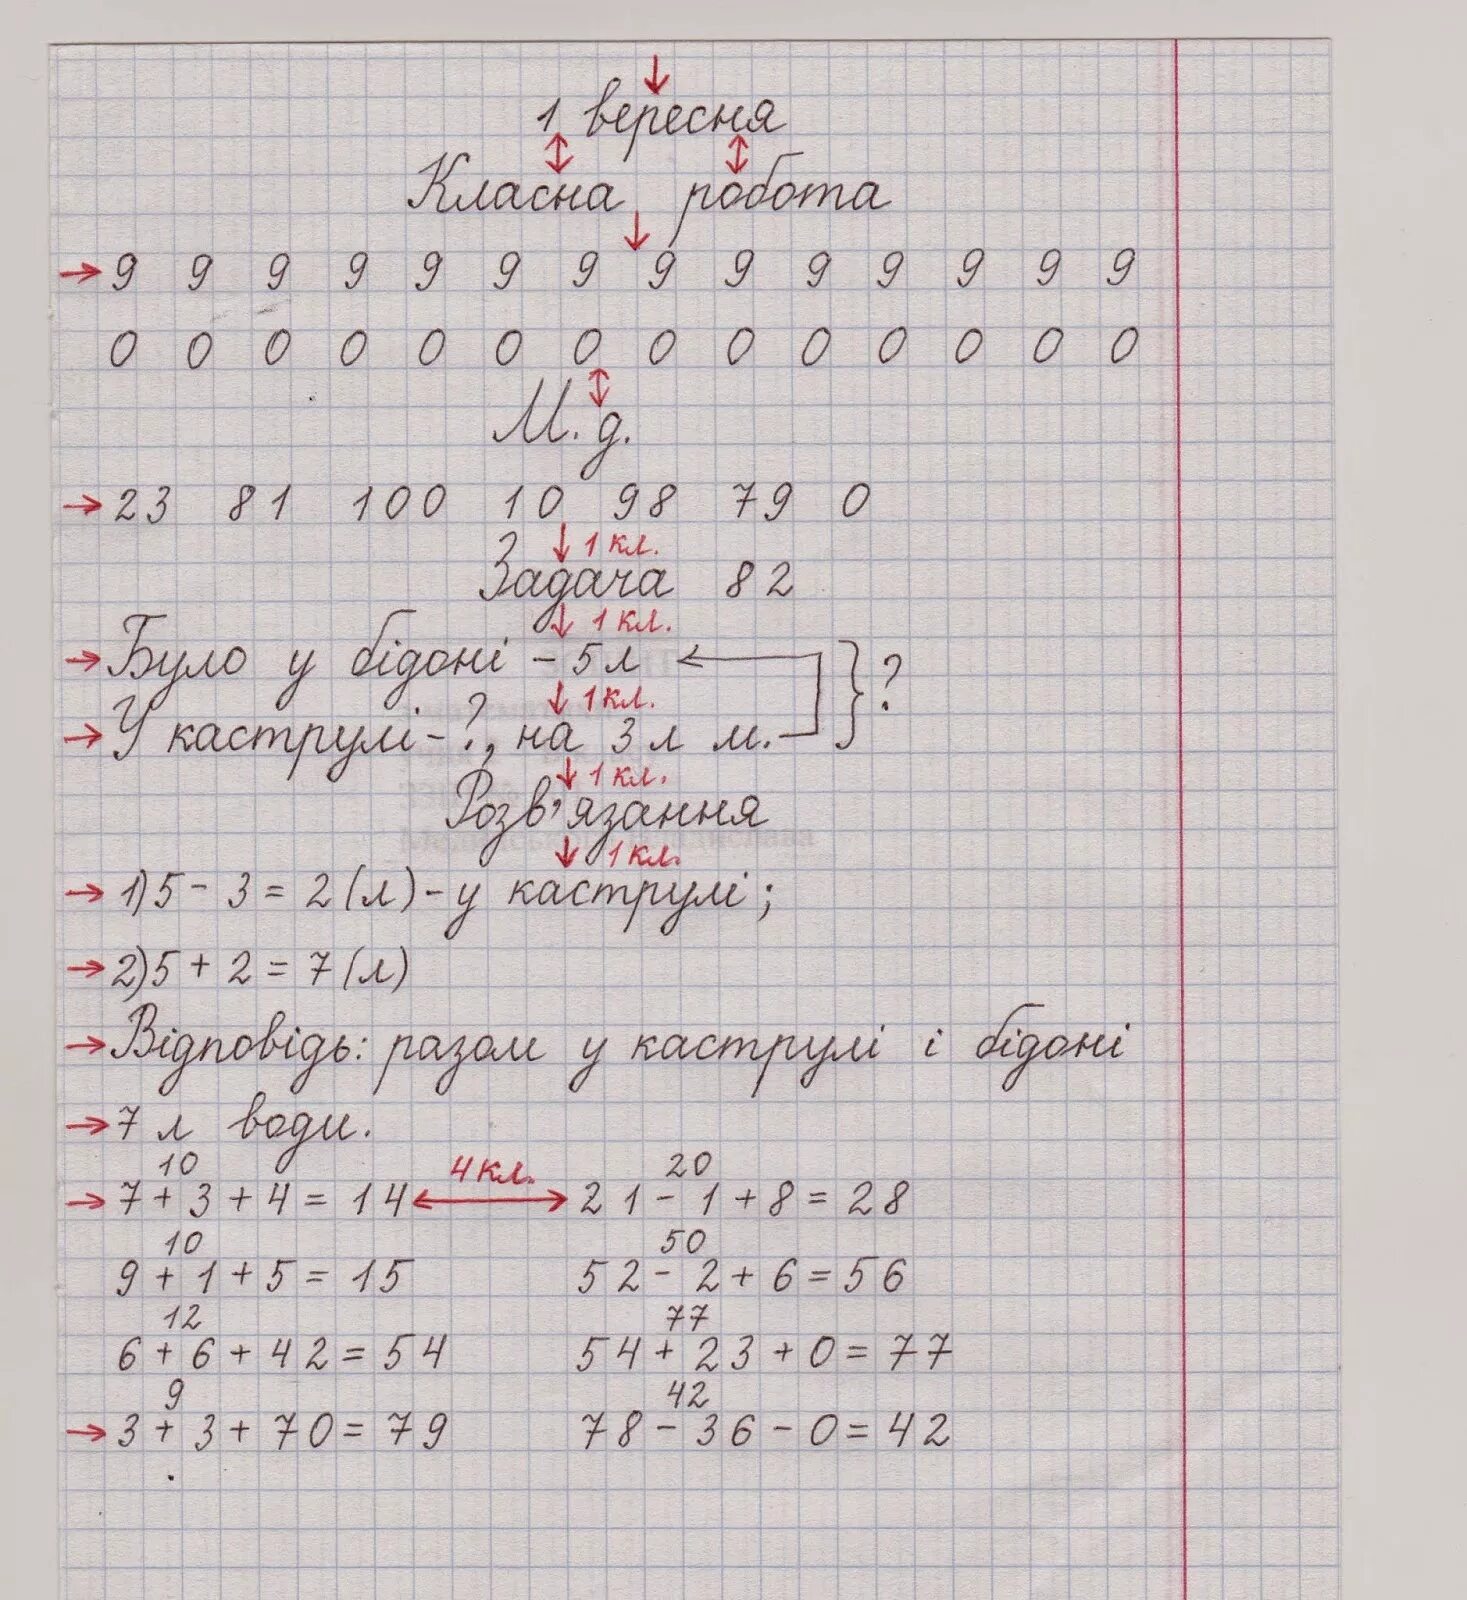 1 вересня
Класна робота
9 9 9 9 9 9 9 9 9 9 9 9 9 9
0 0 0 0 0 0 0 0 0 0 0 0 0 0
М. д.
23 81 100 10 98 79 0
1 кл.
Задача 82
1 кл.
Було у бідоні – 5 л
?
1 кл.
У каструлі - ?, на 3 л м.
1 кл.
Розв'язання
1 кл.
1) 5 - 3 = 2 (л) - у каструлі;
2) 5 + 2 = 7 (л)
Відповідь: разом у каструлі і бідоні
7 л води.
10 4 кл. 20
7 + 3 + 4 = 14 21 - 1 + 8 = 28
10 50
9 + 1 + 5 = 15 52 - 2 + 6 = 56
12 77
6 + 6 + 42 = 54 54 + 23 + 0 = 77
9 42
3 + 3 + 70 = 79 78 - 36 - 0 = 42